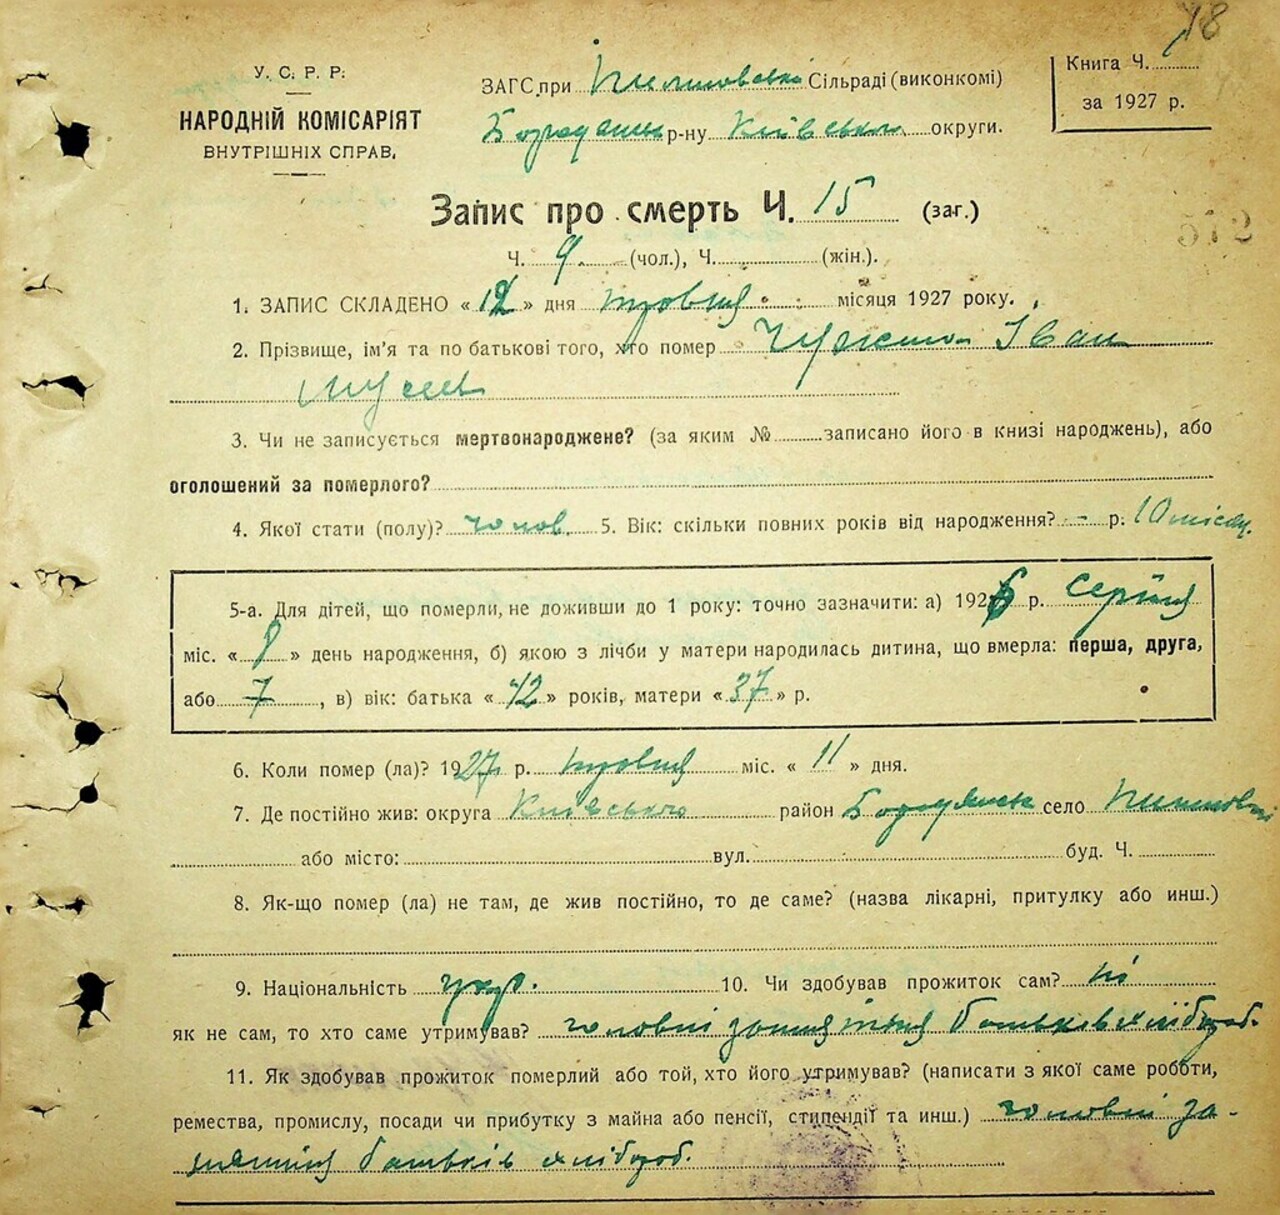 18
У. С. Р. Р.
НАРОДНІЙ КОМІСАРІЯТ
ВНУТРІШНІХ СПРАВ.
ЗАГС при Сільраді (виконкомі)
р-ну Київсько округи.
Книга Ч.
за 1927 р.
Запис про смерть Ч. 15 (заг.)
Ч. 9 (чол.), Ч. (жін.).
1. ЗАПИС СКЛАДЕНО «12» дня травня місяця 1927 року.
2. Прізвище, ім'я та по батькові того, хто помер Іван
3. Чи не записується мертвонароджене? (за яким № записано його в книзі народжень), або
оголошений за померлого?
4. Якої стати (полу)? чолов. 5. Вік: скільки повних років від народження? - р. 10 місяц.
5-а. Для дітей, що померли, не доживши до 1 року: точно зазначити: а) 1926 р. серпня
міс. «8» день народження, б) якою з лічби у матери народилась дитина, що вмерла: перша, друга,
або 7, в) вік: батька «42» років, матери «37» р.
6. Коли помер (ла)? 1927 р. травня міс. «11» дня.
7. Де постійно жив: округа Київсько район Бородянськ село
або місто: вул. буд. Ч.
8. Як-що помер (ла) не там, де жив постійно, то де саме? (назва лікарні, притулку або инш.)
9. Національність укр. 10. Чи здобував прожиток сам? ні
як не сам, то хто саме утримував? головні заняття батьків хлібороб.
11. Як здобував прожиток померлий або той, хто його утримував? (написати з якої саме роботи,
ремества, промислу, посади чи прибутку з майна або пенсії, стипендії та инш.) головні за-
няття батьків хлібороб.